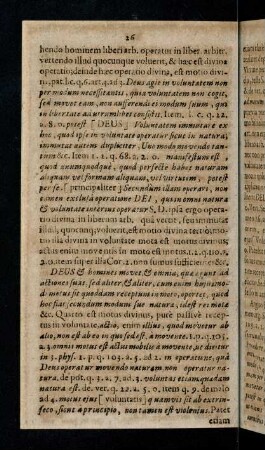 26
hendo hominem liberi arb. operatur in liber. arbitr.
vertendo illud quocunque voluerit, & hæc est divina
operatio; deinde hæc operatio divina, est motio divi-
na, pat. hc. q. 6. art. 4. ad 3. Deus agit in voluntatem non
per modum necessitantis, quia voluntatem non cogit,
sed movet eam, non auferendo ei modum suum, qui
in libertate ad utrumlibet consistit. Item, 1. c. q. 22,
a. 8. o. potest [DEUS] Voluntatem immutare ex
hoc, quod ipse in voluntate operatur sicut in natura,
immutat autem dupliciter. Uno modo movendo tan-
tum &c. Item 1. 2. q. 68. a. 2. o. manifestum est
quod unumquodque, quod perfecte habet naturam
aliquam vel formam aliquam, vel virtutem, potest
per se, [principaliter] secundum illam operari, non
tamen exclusa operatione DEI, quia in omni natura
& voluntate interius operatur. S. D. ipsa ergo opera-
tio divina in liberum arb. quà vertit, seu immutat
illud, quocunq; voluerit, est motio divina; tertio, mo-
tio illa divina in voluntate mota est motus divinus,
actus enim moventis est motus. 1. 2. q. 110. a.
2. o. item sui; et illa Cor. 3. non sumus sufficientes &c.
DEUS & homines movet, & omnia, quæ agunt ad
actiones suas, sed aliter, & aliter, cum enim hujusmo-
di motus sit quoddam receptum in moto, oportet, quod
hoc fiat secundum modum suæ naturæ, id est rei motæ
&c. Quarto est motus divinus, pure passive recep-
tus in voluntate. actus, enim illius, quod movetur ab
alio, non est ab eo in quo sed est, à movente. 1. p. q. 105,
a. 3. omnis motus est actus mobilis à movente, ut dicitur
in 3. phys. 1. p. q. 103. a. 5. ad 2. in operatione, quâ
Deus operatur movendo naturam, non operatur na-
tura, de pot. q. 3. a. 7, ad. 3. voluntas etiam quædam
natura est. de. ver. q. 22. a. 5. o, item q. 9. de malo
ad 4. motus ejus [voluntatis] quamvis sit ab extrin-
seco, sicut a principio, non tamen est violentus. Patet
etiam